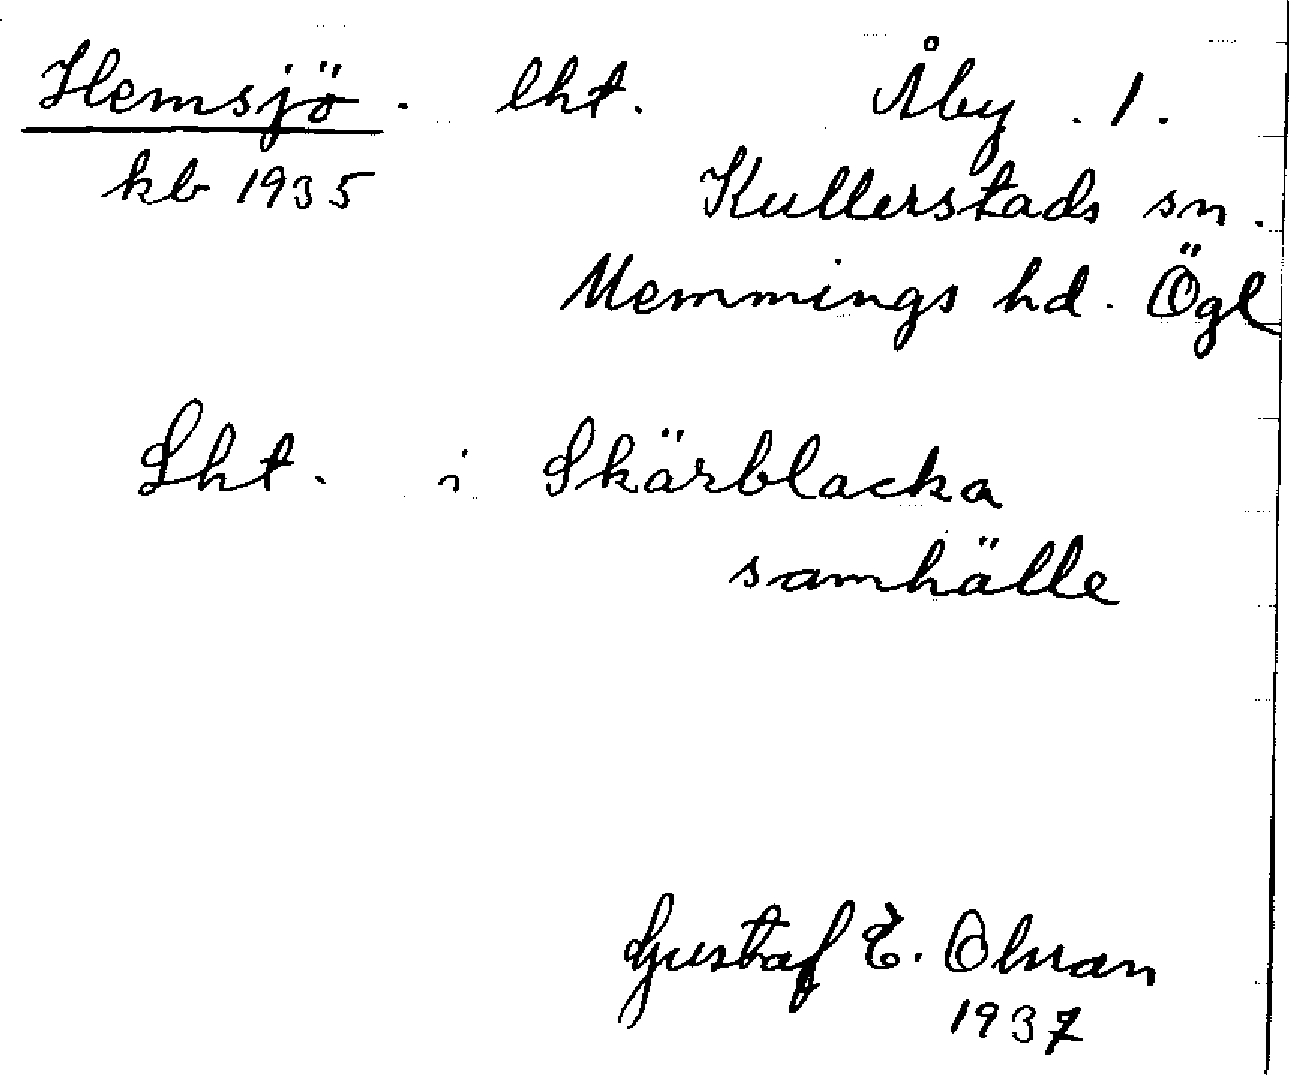 Hemsjö. lht. Åby. 1.
kb 1935 Kullerstads sn.
Memmings hd. Ögl
Lht. i Skärblacka
samhälle
Gustaf E. Ohran
1937